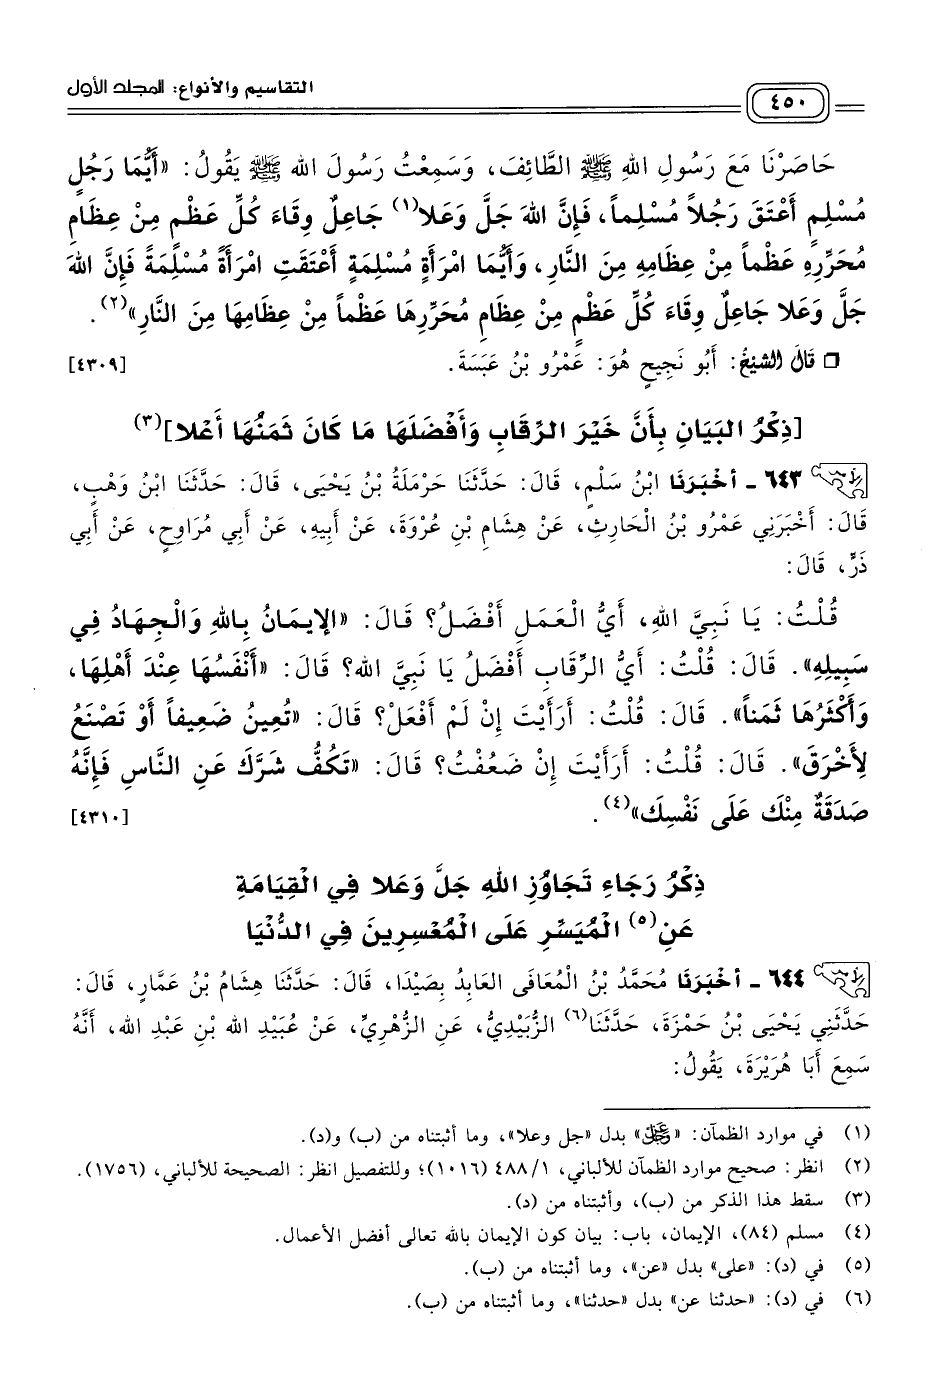 التقاسيم والأنواع: المجلد الأول
٤٥٠
حَاصَرْنَا مَعَ رَسُولِ اللهِ ﷺ الطَّائِفَ، وَسَمِعْتُ رَسُولَ اللهِ ﷺ يَقُولُ: «أَيُّمَا رَجُلٍ
مُسْلِمٍ أَعْتَقَ رَجُلاً مُسْلِماً، فَإِنَّ اللهَ جَلَّ وَعَلا(١) جَاعِلٌ وِقَاءَ كُلِّ عَظْمٍ مِنْ عِظَامِ
مُحَرِّرِهِ عَظْماً مِنْ عِظَامِهِ مِنَ النَّارِ، وَأَيُّمَا امْرَأَةٍ مُسْلِمَةٍ أَعْتَقَتِ امْرَأَةً مُسْلِمَةً فَإِنَّ اللهَ
جَلَّ وَعَلا جَاعِلٌ وِقَاءَ كُلِّ عَظْمٍ مِنْ عِظَامِ مُحَرِّرِهَا عَظْماً مِنْ عِظَامِهَا مِنَ النَّارِ»(٢).
❒ قَالَ الشَّيْخُ: أَبُو نَجِيحٍ هُوَ: عَمْرُو بْنُ عَبَسَةَ. [٤٣٠٩]
[ذِكْرُ البَيَانِ بِأَنَّ خَيْرَ الرِّقَابِ وَأَفْضَلَهَا مَا كَانَ ثَمَنُهَا أَعْلا](٣)
٦٤٣ - أَخْبَرَنَا ابْنُ سَلْمٍ، قَالَ: حَدَّثَنَا حَرْمَلَةُ بْنُ يَحْيَى، قَالَ: حَدَّثَنَا ابْنُ وَهْبٍ،
قَالَ: أَخْبَرَنِي عَمْرُو بْنُ الْحَارِثِ، عَنْ هِشَامِ بْنِ عُرْوَةَ، عَنْ أَبِيهِ، عَنْ أَبِي مُرَاوِحٍ، عَنْ أَبِي
ذَرٍّ، قَالَ:
قُلْتُ: يَا نَبِيَّ اللهِ، أَيُّ الْعَمَلِ أَفْضَلُ؟ قَالَ: «الإِيمَانُ بِاللهِ وَالْجِهَادُ فِي
سَبِيلِهِ». قَالَ: قُلْتُ: أَيُّ الرِّقَابِ أَفْضَلُ يَا نَبِيَّ اللهِ؟ قَالَ: «أَنْفَسُهَا عِنْدَ أَهْلِهَا،
وَأَكْثَرُهَا ثَمَناً». قَالَ: قُلْتُ: أَرَأَيْتَ إِنْ لَمْ أَفْعَلْ؟ قَالَ: «تُعِينُ ضَعِيفاً أَوْ تَصْنَعُ
لِأَخْرَقَ». قَالَ: قُلْتُ: أَرَأَيْتَ إِنْ ضَعُفْتُ؟ قَالَ: «تَكُفُّ شَرَّكَ عَنِ النَّاسِ فَإِنَّهُ
صَدَقَةٌ مِنْكَ عَلَى نَفْسِكَ»(٤). [٤٣١٠]
ذِكْرُ رَجَاءِ تَجَاوُزِ اللهِ جَلَّ وَعَلا فِي الْقِيَامَةِ
عَنِ(٥) الْمُيَسِّرِ عَلَى الْمُعْسِرِينَ فِي الدُّنْيَا
٦٤٤ - أَخْبَرَنَا مُحَمَّدُ بْنُ الْمُعَافَى العَابِدُ بِصَيْدَا، قَالَ: حَدَّثَنَا هِشَامُ بْنُ عَمَّارٍ، قَالَ:
حَدَّثَنِي يَحْيَى بْنُ حَمْزَةَ، حَدَّثَنَا(٦) الزُّبَيْدِيُّ، عَنِ الزُّهْرِيِّ، عَنْ عُبَيْدِ اللهِ بْنِ عَبْدِ اللهِ، أَنَّهُ
سَمِعَ أَبَا هُرَيْرَةَ، يَقُولُ:
(١) في موارد الظمآن: «ﷻ» بدل «جل وعلا»، وما أثبتناه من (ب) و(د).
(٢) انظر: صحيح موارد الظمآن للألباني، ١/ ٤٨٨ (١٠١٦)؛ وللتفصيل انظر: الصحيحة للألباني، (١٧٥٦).
(٣) سقط هذا الذكر من (ب)، وأثبتناه من (د).
(٤) مسلم (٨٤)، الإيمان، باب: بيان كون الإيمان بالله تعالى أفضل الأعمال.
(٥) في (د): «على» بدل «عن»، وما أثبتناه من (ب).
(٦) في (د): «حدثنا عن» بدل «حدثنا»، وما أثبتناه من (ب).